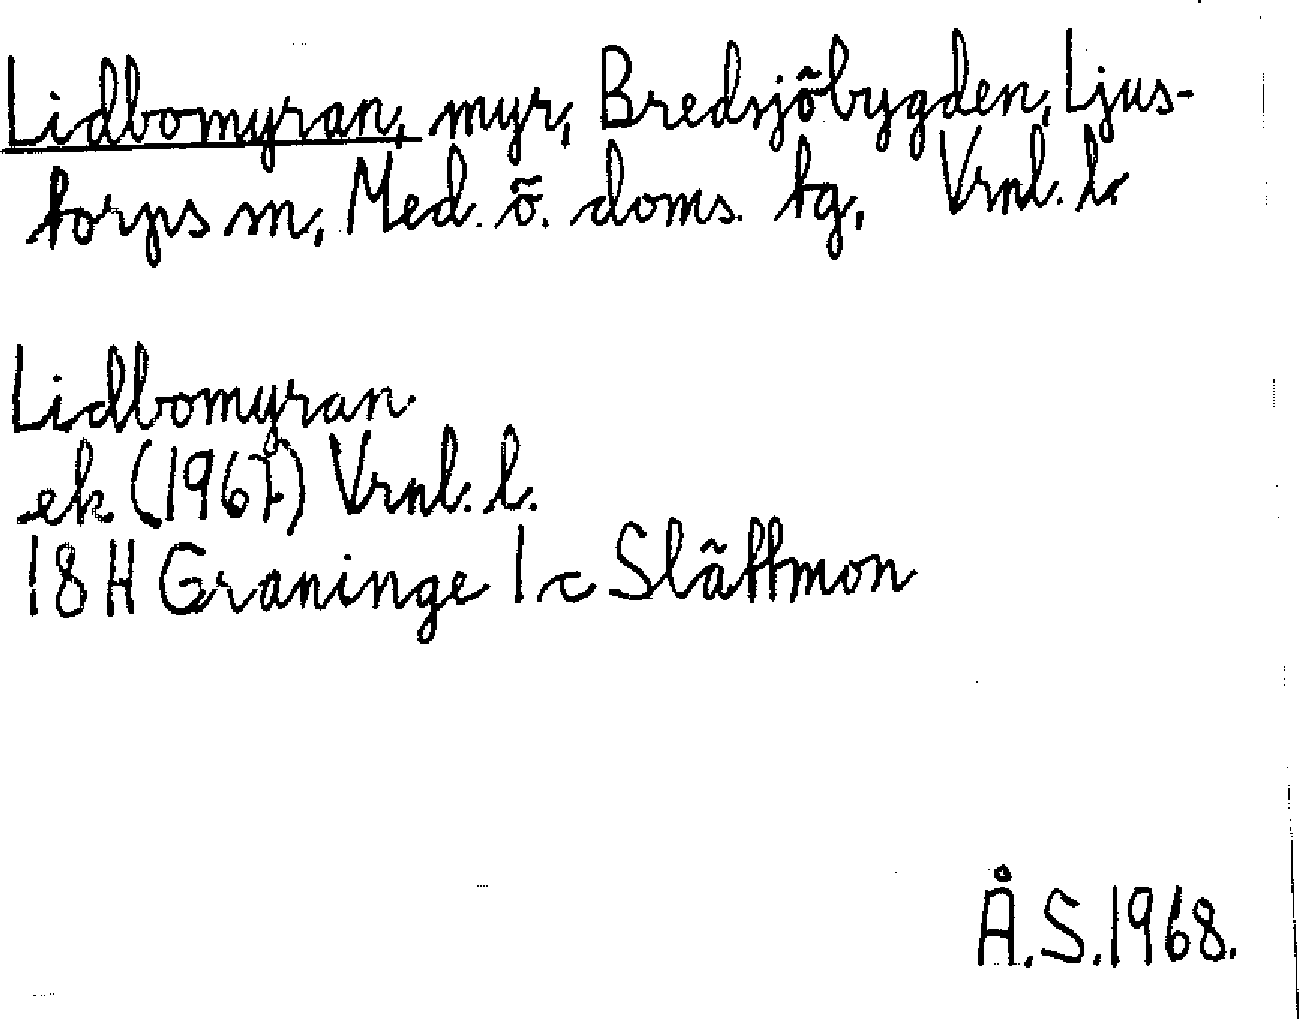 Lidbomyran, myr, Bredsjöbygden, Ljus-
torps sn, Med. ö. doms. tg, Vrnl. l.
Lidbomyran
ek (1967) Vrnl. l.
18 H Graninge 1 c Slättmon
Å.S. 1968.